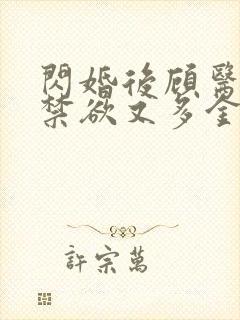 閃婚後顧醫
禁欲又多金
許宗萬